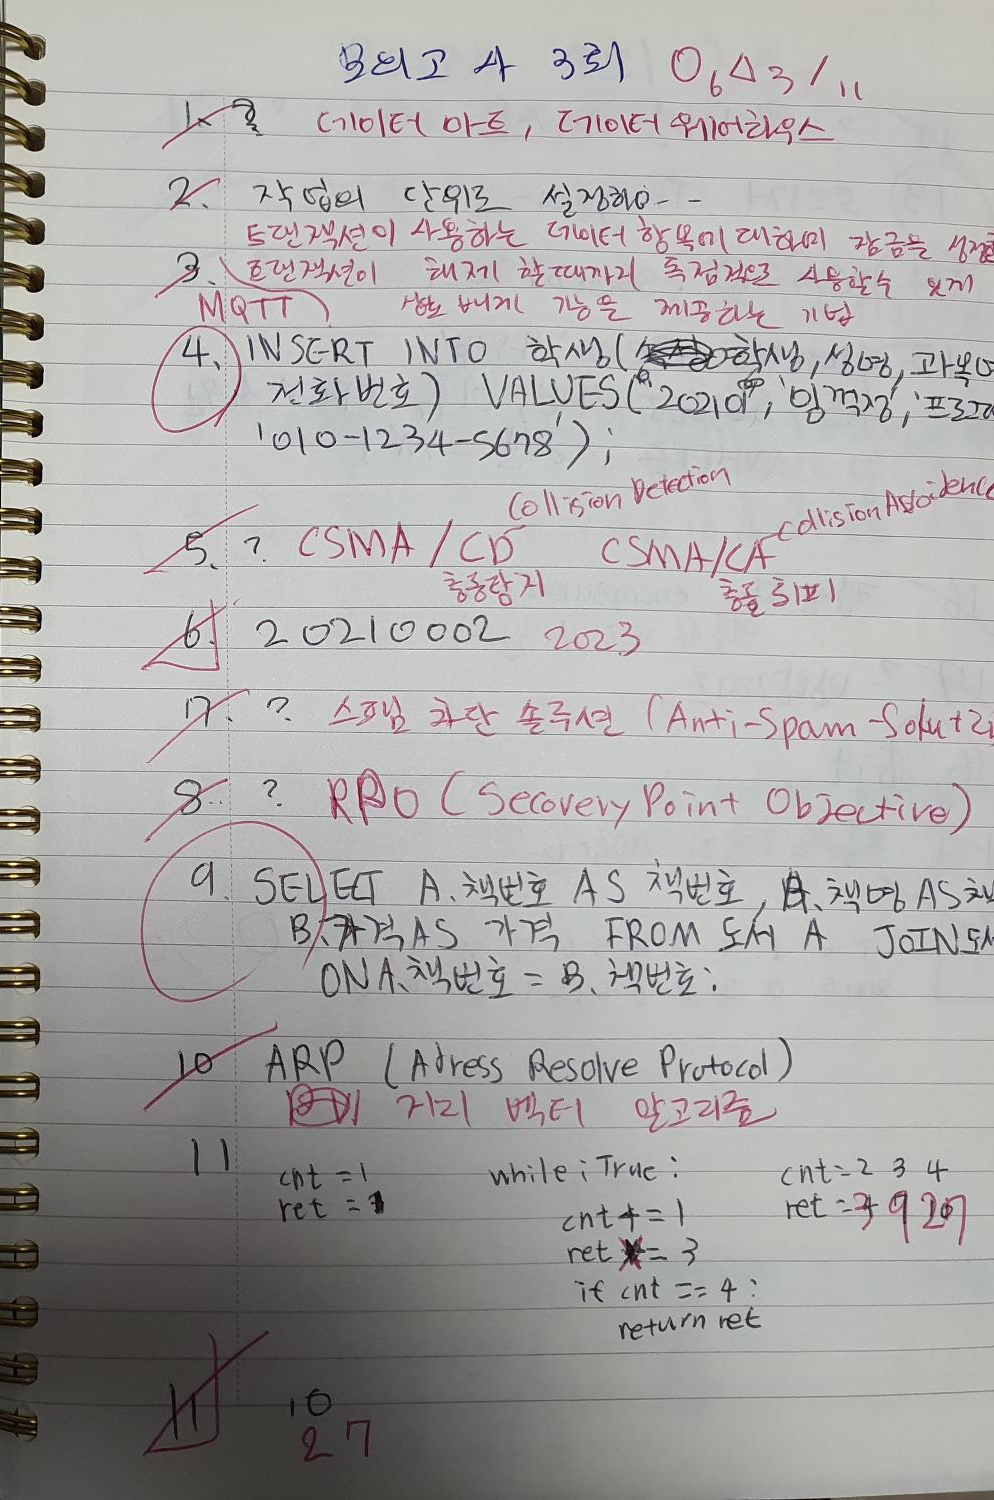 모의고사 3회 O6△3/11
1. ? 데이터 마트, 데이터 웨어하우스
2. 작업의 단위로 설정하는--
트랜잭션이 사용하는 데이터 항목에 대하여 잠금을 설정한
3. 트랜잭션이 해제 할때까지 독점적으로 사용할수 있게
MQTT 상호 배제 기능을 제공하는 기법
4. INSERT INTO 학생(학생, 성명, 과목
전화번호) VALUES('202101', '임꺽정', '프로
'010-1234-5678');
Collision Detection
Collision Assoidence
5. ? CSMA/CD CSMA/CA
충동탐지 충돌 회피
6. 20210002 2023
7. ? 스팸 차단 솔루션 (Anti-Spam-Soluti
8. ? RPO (Secovery Point Objective)
9. SELECT A.책번호 AS 책번호, A.책명 AS 책
B.가격 AS 가격 FROM 도서 A JOIN 도서
ON A.책번호 = B.책번호;
10 ARP (Adress Resolve Protocol)
거리 벡터 알고리즘
11 cnt = 1 while ; True : cnt = 2 3 4
ret = 1 cnt += 1 ret = 3 9 27
ret *= 3
if cnt == 4 :
return ret
11 10
27